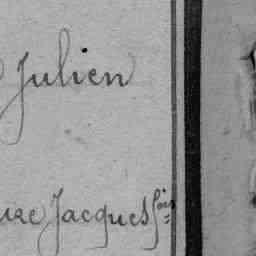 Julien
Jacques fois